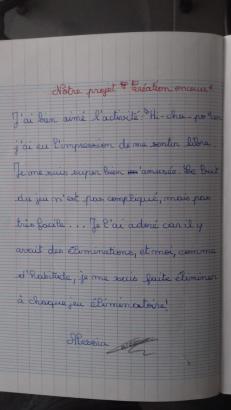 Notre projet "Création en cours"
J'ai bien aimé l'activité "Hi-cha-
j'ai eu l'impression de me sentir libre.
Je me suis super bien amusée. Le but
du jeu n'est pas compliqué, mais pas
très facile.... Je l'ai adoré car il y
avait des éliminations, et moi, comme
d'habitude, je me suis faite éliminer
à chaque jeu éliminatoire!